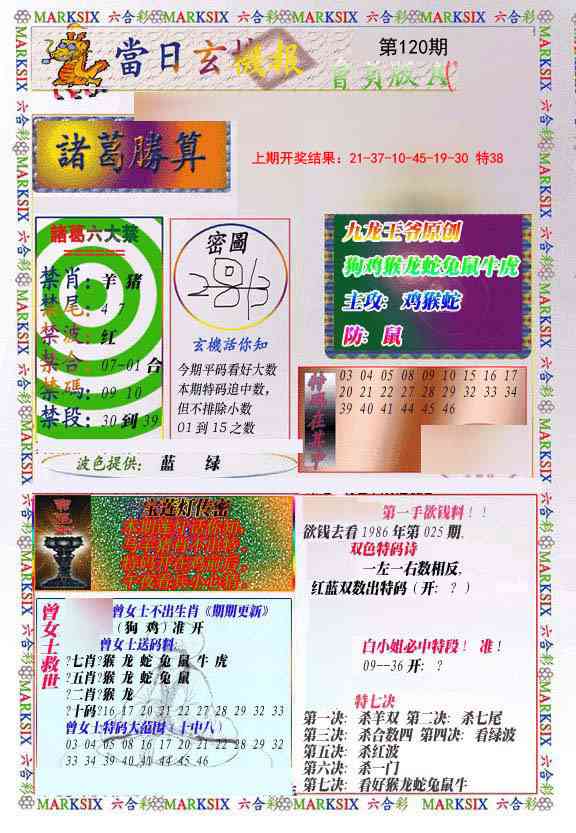 MARKSIX 六合彩 MARKSIX 六合彩 MARKSIX 六合彩 MARKSIX 六合彩
當日玄機報
第120期
會員版A
諸葛勝算
上期开奖结果：21-37-10-45-19-30 特38
諸葛六大禁
禁肖：羊 猪
禁尾：4 7
禁波：红
禁合：07-01合
禁碼：09 10
禁段：30到39
密圖
玄機活你知
今期平码看好大数
本期特码追中数，
但不排除小数
01到15之数
九龙王爷原创
狗鸡猴龙蛇兔鼠牛虎
主攻：鸡猴蛇
防：鼠
特码在其中
03 04 05 08 09 10 15 16 17
20 21 22 27 28 29 32 33 34
39 40 41 44 45 46
波色提供：蓝 绿
宝莲灯传密
曾女士救世
曾女士不出生肖《期期更新》
(狗 鸡)准 开
曾女士送码料
?七肖?猴 龙 蛇 兔 鼠 牛 虎
?五肖?猴 龙 蛇 兔 鼠
?二肖?猴 龙
?十码?16 17 20 21 22 27 28 29 32 33
曾女士特码大范围〈十中八〉
03 04 05 08 16 17 20 21 22 28 29 32
33 34 39 40 41 44 45 46
第一手欲钱料！！
欲钱去看1986年第025期。
双色特码诗
一左一右数相反，
红蓝双数出特码（开：？）
白小姐必中特段！ 准！
09--36 开：？
特七决
第一决：杀羊双 第二决：杀七尾
第三决：杀合数四 第四决：看绿波
第五决：杀红波
第六决：杀一门
第七决：看好猴龙蛇兔鼠牛
MARKSIX 六合彩 MARKSIX 六合彩 MARKSIX 六合彩 MARKSIX 六合彩